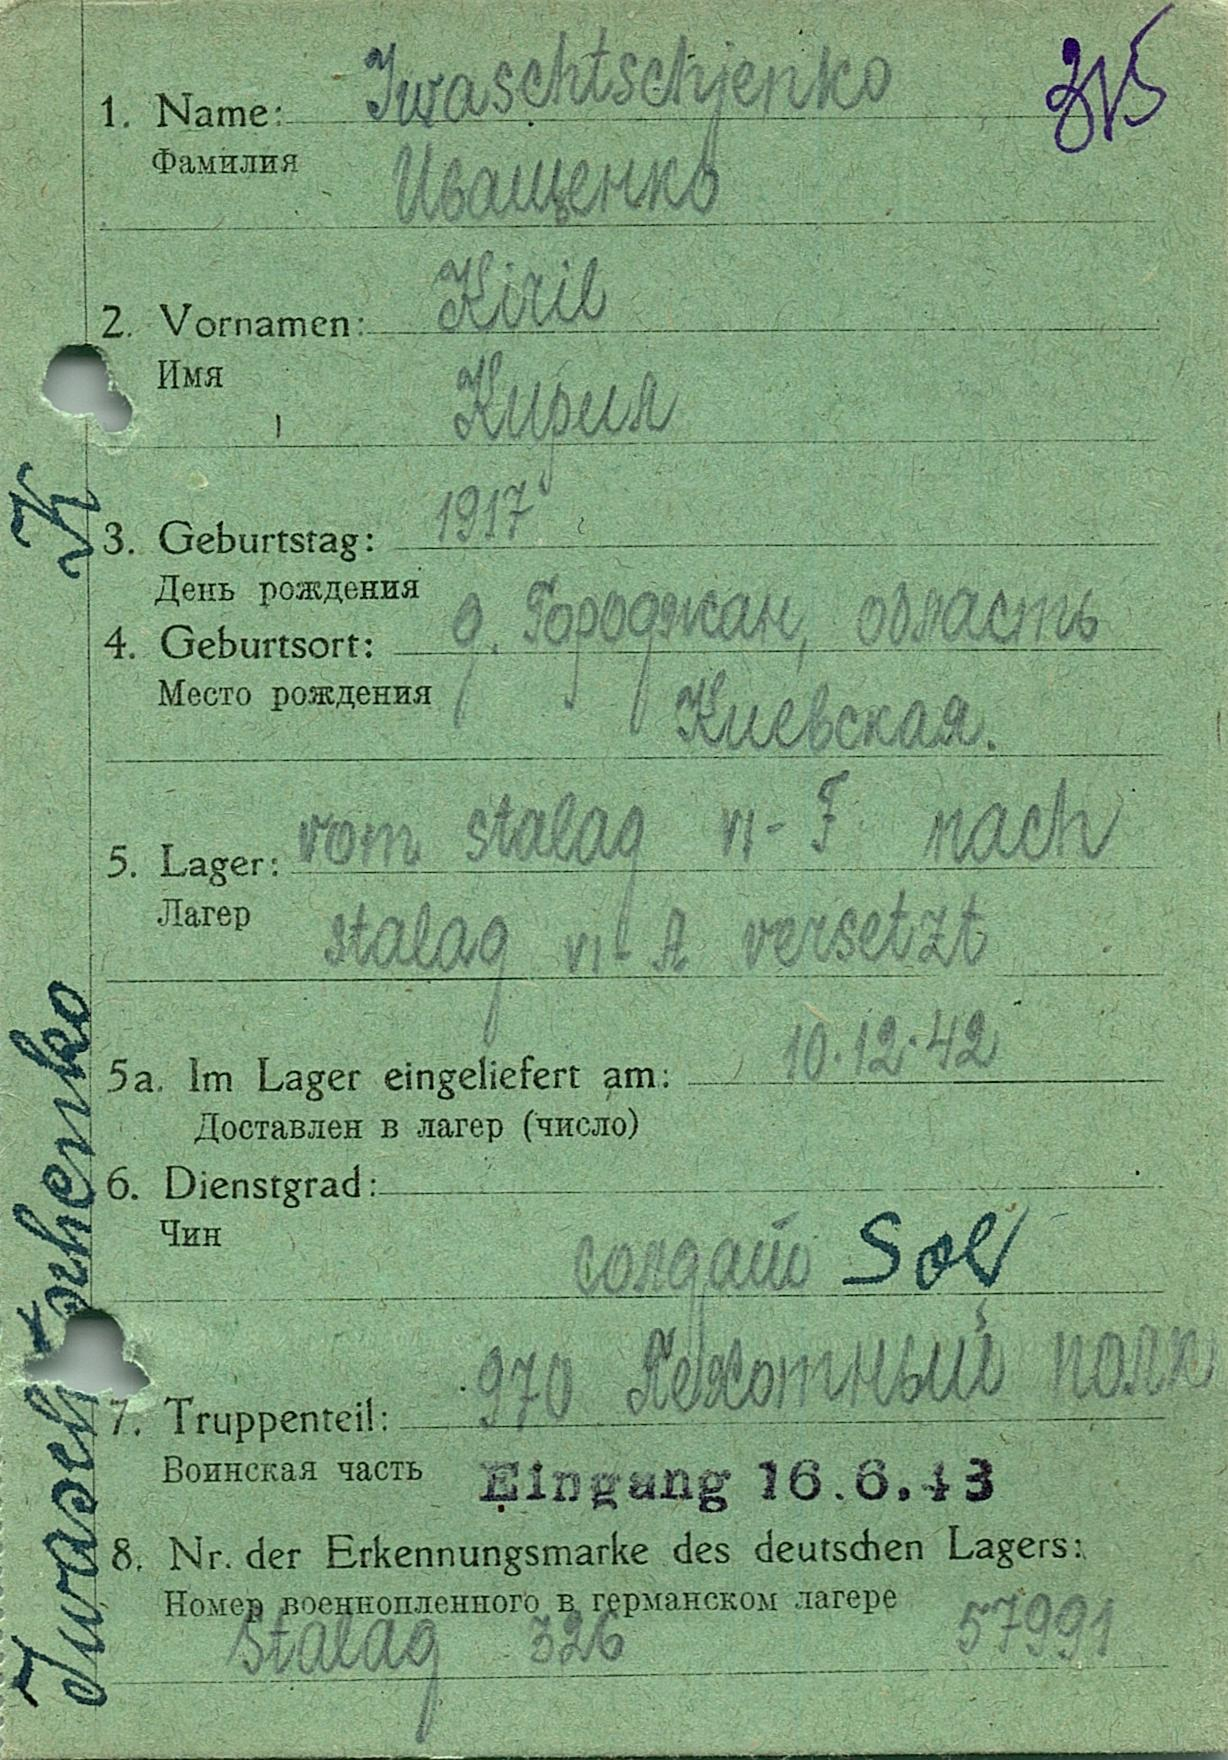 1. Name: Iwaschtschjenko 315
Фамилия Иващенко
2. Vornamen: Kiril
Имя Кирил
3. Geburtstag: 1917
День рождения
4. Geburtsort: д. Городжан, область
Место рождения Киевская.
5. Lager: vom stalag VI-F nach
Лагер stalag VI-A versetzt
5a. Im Lager eingeliefert am: 10.12.42
Доставлен в лагер (число)
6. Dienstgrad:
Чин солдат Sol
7. Truppenteil: 970 Пехотный полк
Воинская часть Eingang 16.6.43
8. Nr. der Erkennungsmarke des deutschen Lagers:
Номер военнопленного в германском лагере
Stalag 326 57991
Iwaschtschenko K